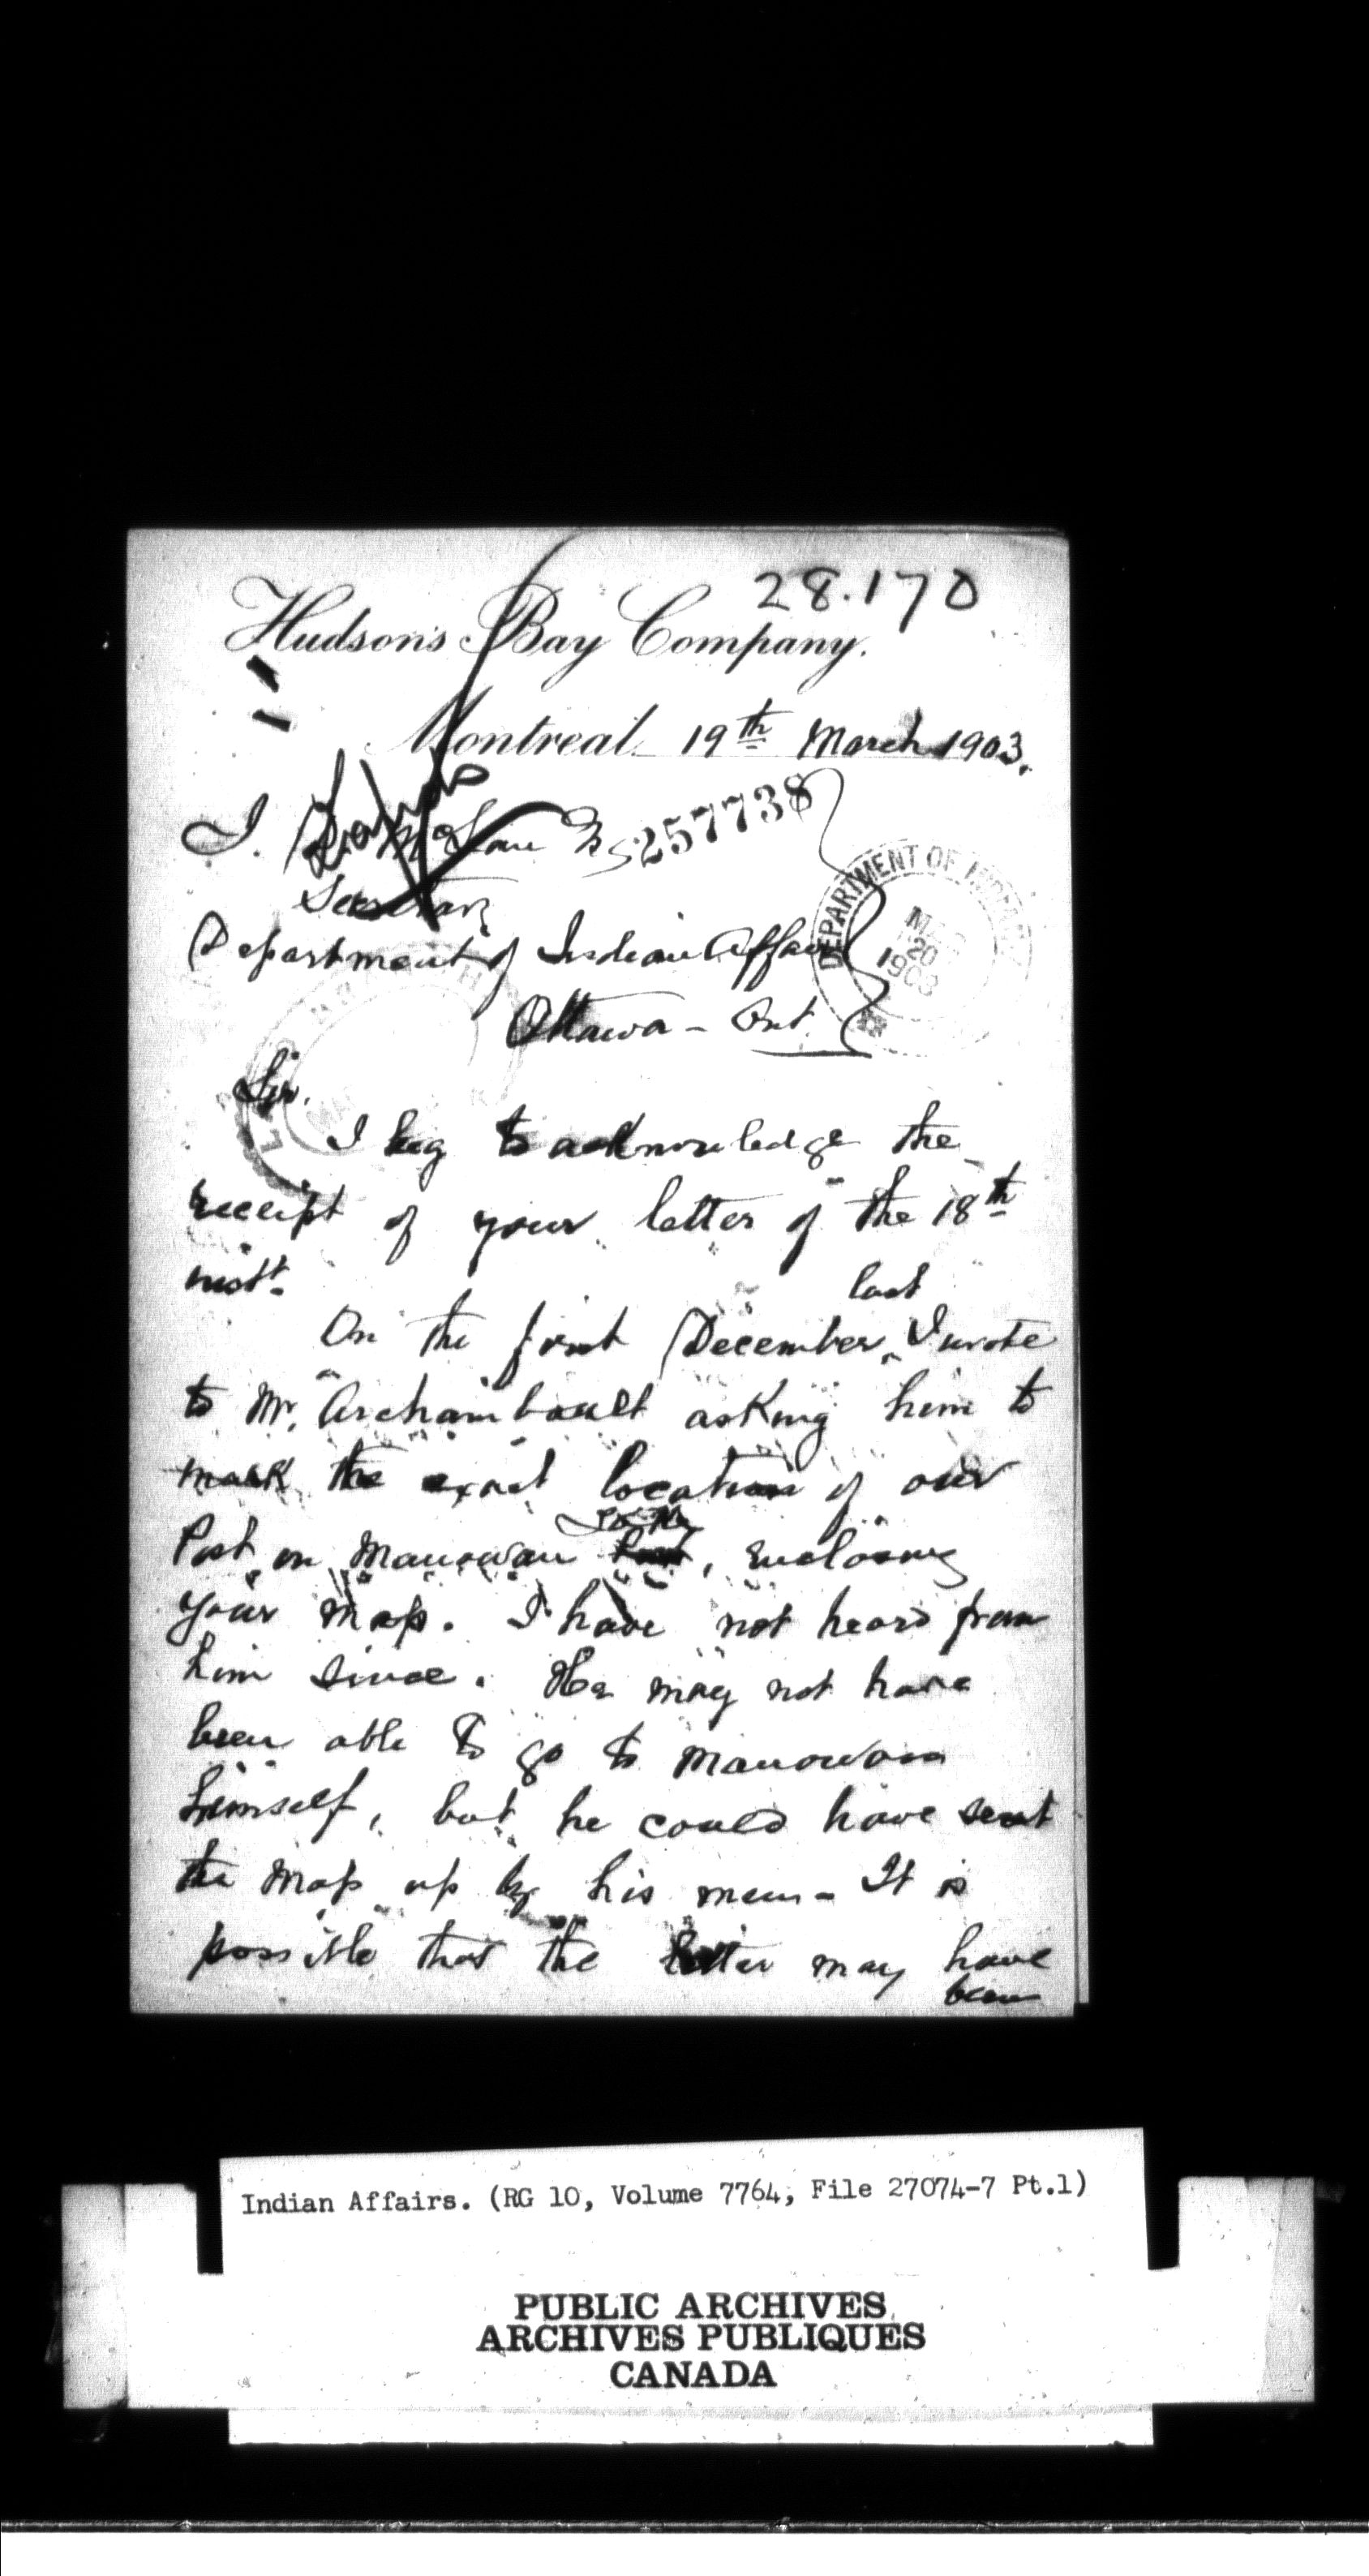 28.170
Hudson's Bay Company.
Montreal 19th March 1903.
257738
J. McLean Esq
Secretary
Department of Indian Affairs
Ottawa - Ont.
DEPARTMENT OF INDIAN
MAR
20
1903
Sir.
I beg to acknowledge the
receipt of your letter of the 18th
inst.
last
On the first December, I wrote
to Mr. Archambault asking him to
mark the exact location of our
Post on Manowan, enclosing
your map. I have not heard from
him since. He may not have
been able to go to Manowan
himself, but he could have sent
the map up by his men - It is
possible that the letter may have
been
Indian Affairs. (RG 10, Volume 7764, File 27074-7 Pt.1)
PUBLIC ARCHIVES
ARCHIVES PUBLIQUES
CANADA